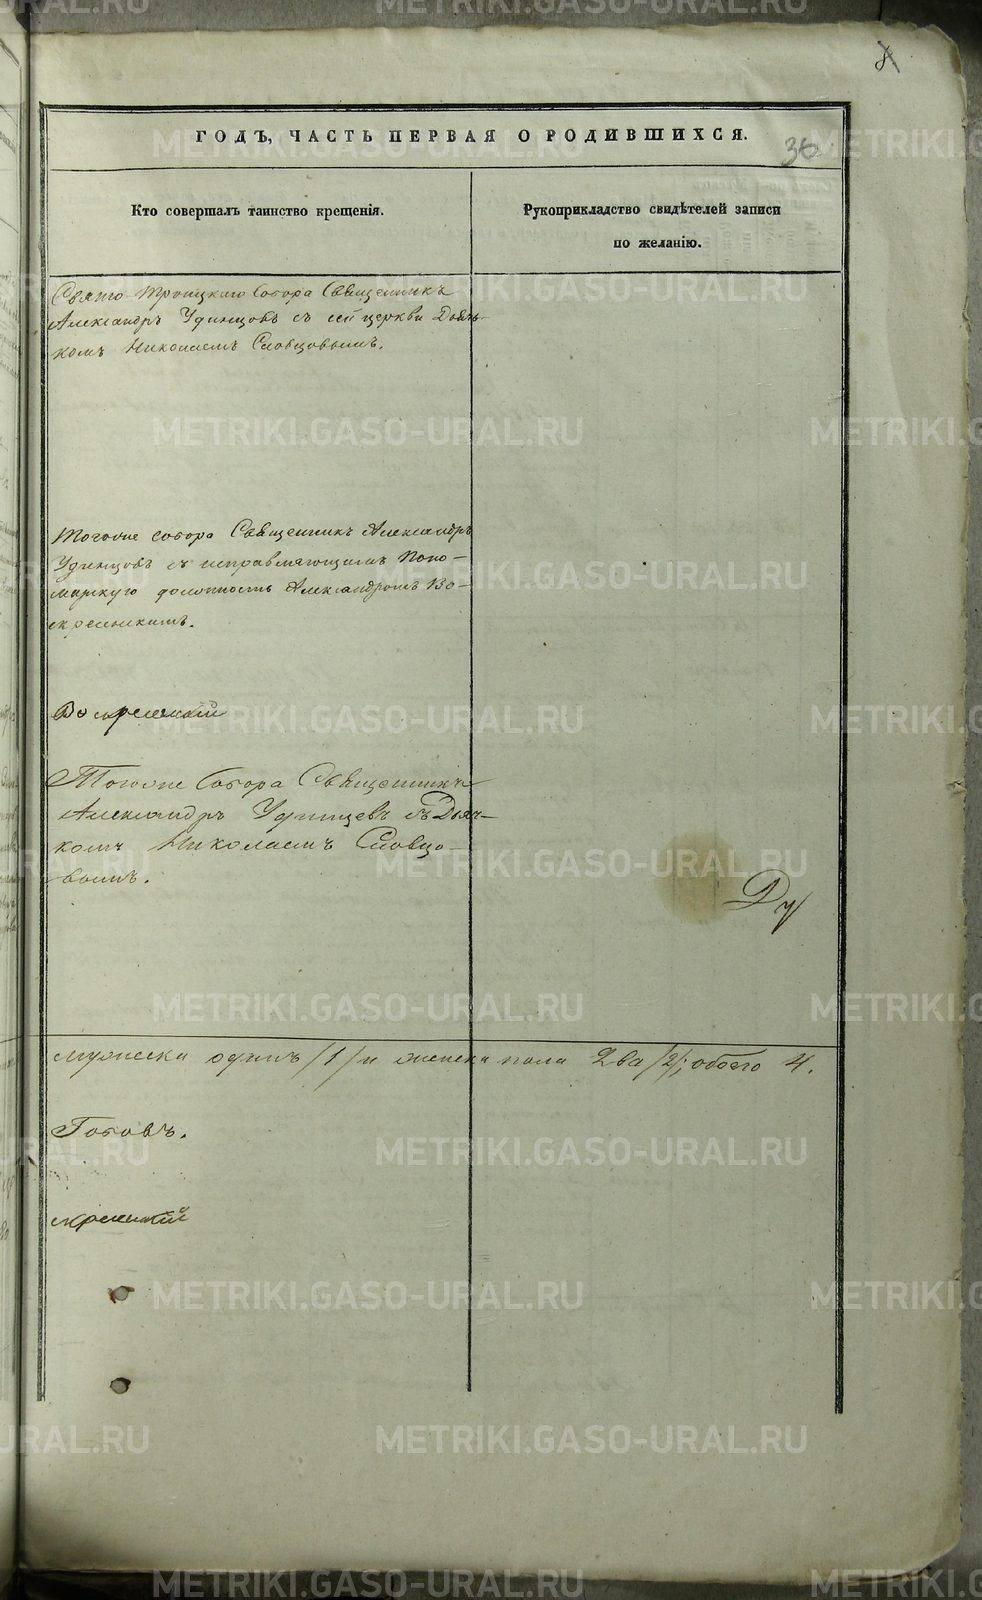 8
ГОДЪ, ЧАСТЬ ПЕРВАЯ О РОДИВШИХСЯ.
36
Кто совершалъ таинство крещенія.
Рукоприкладство свидѣтелей записи
по желанію.
Свято-Троицкаго Собора Священникъ
Александръ Удинцовъ съ сей церкви Дьяч-
комъ Николаемъ Словцовымъ.
Тогоже собора Священникъ Александръ
Удинцовъ съ исправляющимъ Поно-
марскую должность Александромъ Во-
скресенскимъ.
Воскресенскій
Тогоже Собора Священникъ
Александръ Удинцевъ съ Дьяч-
комъ Николаемъ Словцо-
вымъ.
Ду
мужеска одинъ /1/ и женска пола два /2/; обоего 4.
Готовъ.
скресенскій
METRIKI.GASO-URAL.RU